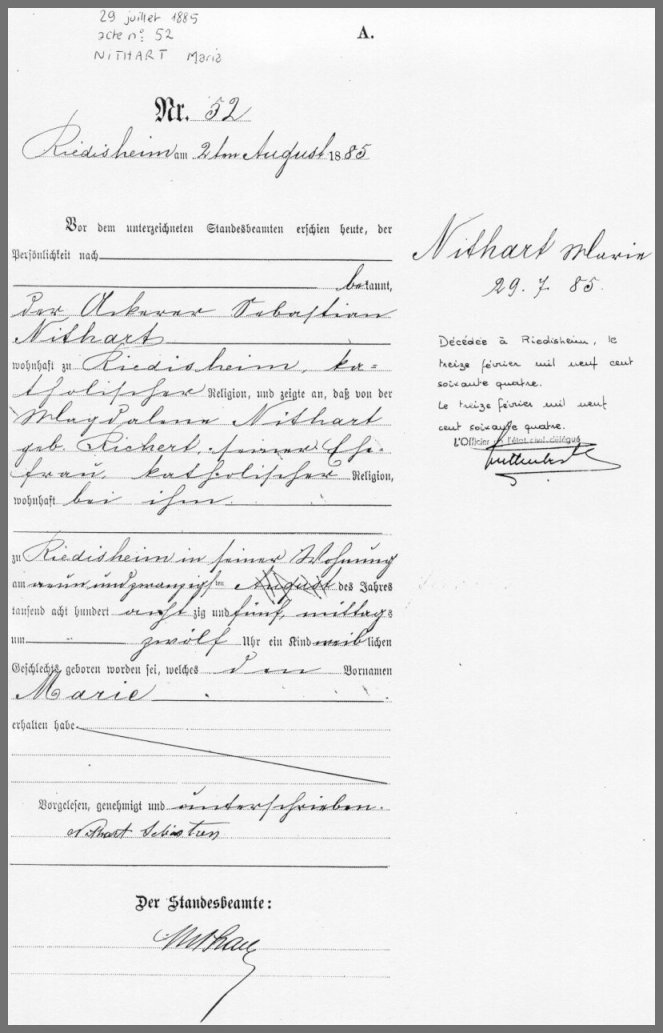 29 juillet 1885
acte n° 52
NITHART Maria
A.
Nr. 52
Riedisheim am 2ten August 1885
Vor dem unterzeichneten Standesbeamten erschien heute, der
Persönlichkeit nach
bekannt,
der Ackerer Sebastian
Nithart
wohnhaft zu Riedisheim, ka=
tholischer Religion, und zeigte an, daß von der
Magdalena Nithart
geb. Richert, seiner Ehe-
frau, katholischer Religion,
wohnhaft bei ihm
zu Riedisheim in seiner Wohnung
am neun und zwanzigsten August des Jahres
tausend acht hundert achtzig und fünf, mittags
um zwölf Uhr ein Kind weiblichen
Geschlechts geboren worden sei, welches den Vornamen
Marie
erhalten habe.
Vorgelesen, genehmigt und unterschrieben.
Nithart Sebastian
Der Standesbeamte:
Nithart Marie
29. 7. 85.
Décédée à Riedisheim, le
treize février mil neuf cent
soixante quatre.
Le treize février mil neuf
cent soixante quatre.
L'Officier de l'état civil délégué